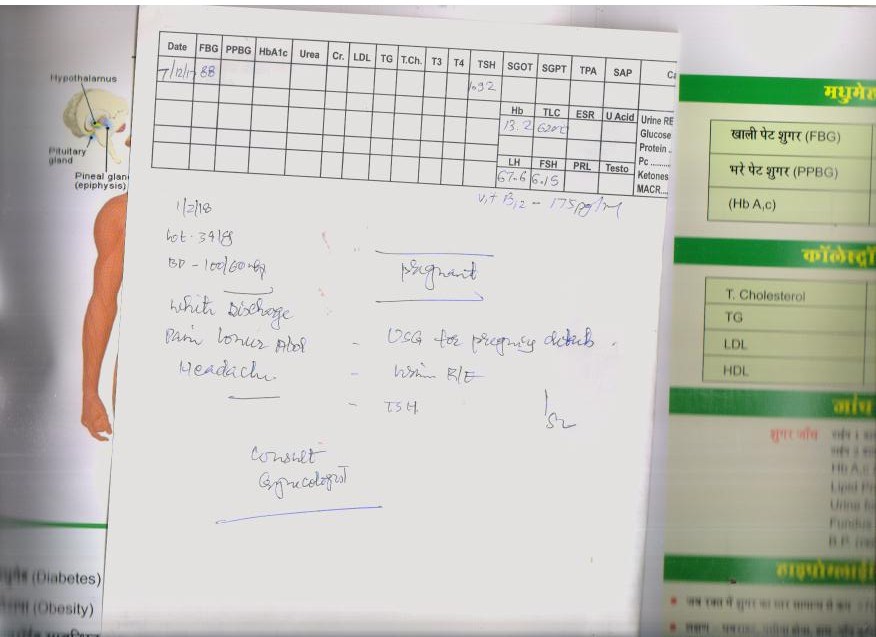 Hypothalamus
Pituitary
gland
Pineal glan
(epiphysis)
Date FBG PPBG HbA1c Urea Cr. LDL TG T.Ch. T3 T4 TSH SGOT SGPT TPA SAP Ca
7/12/17 88 1.92
Hb TLC ESR U Acid Urine RE
13.2 6200 Glucose
Protein
Pc ........
LH FSH PRL Testo Ketones
67.6 6.15 MACR...
Vit B12 - 175 pg/ml
1/2/18
BP - 100/60 mmHg
pregnant
White Discharge
Pain Lower Abd - USG for pregnancy details.
Headache - Urine R/E
- TSH
Consult
Gynecologist
खाली पेट शुगर (FBG)
भरे पेट शुगर (PPBG)
(Hb A,c)
T. Cholesterol
TG
LDL
HDL
जांच
शुगर जाँच
(Diabetes)
(Obesity)